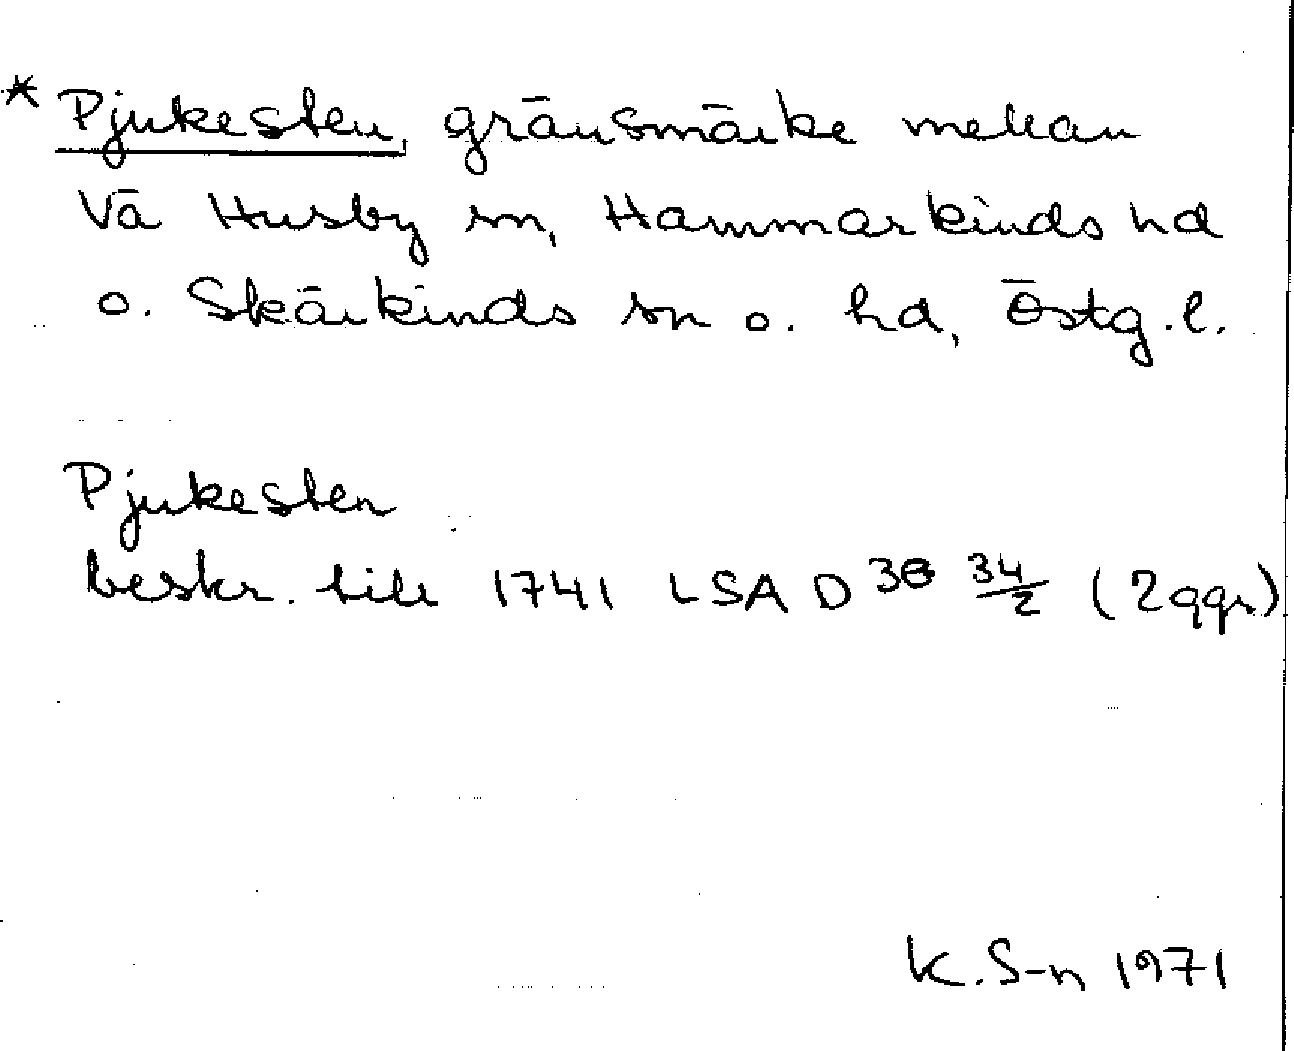 * Pjukesten, gränsmärke mellan
Vä Husby sn, Hammarkinds hd
o. Skärkinds sn o. hd, Östg.l.
Pjukesten
beskr. till 1741 LSA D 38 34/2 (2 ggr)
K. S-n 1971